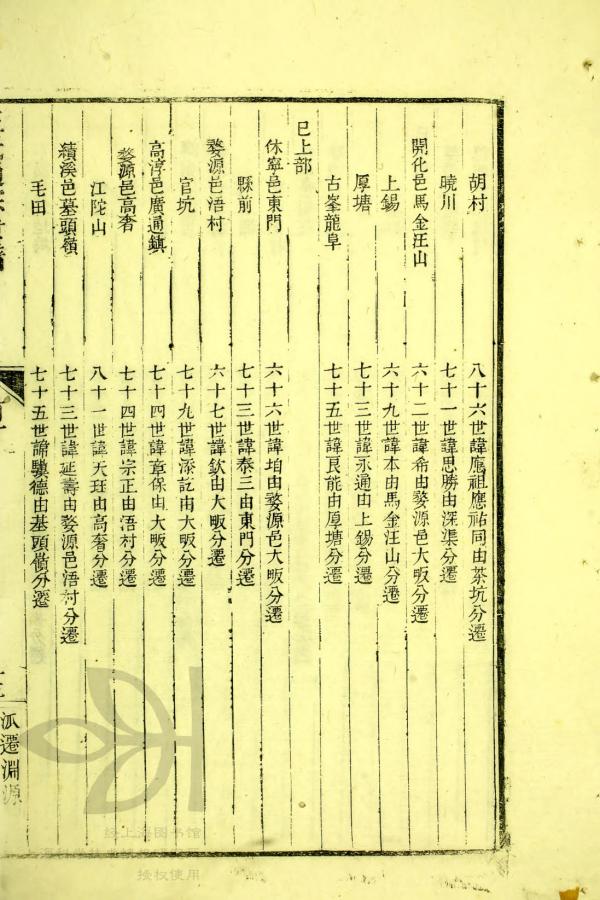 胡村 八十六世諱應祖應祐同由茶坑分遷
曉川 七十一世諱思勝由深渠分遷
開化邑馬金汪山 六十二世諱希由婺源邑大畈分遷
上錫 六十九世諱本由馬金汪山分遷
厚塘 七十三世諱永通由上錫分遷
古峯龍阜 七十五世諱良能由厚塘分遷
已上部
休寧邑東門 六十六世諱垍由婺源邑大畈分遷
縣前 七十三世諱泰三由東門分遷
婺源邑浯村 六十七世諱欽由大畈分遷
官坑 七十九世諱添記由大畈分遷
高淳邑廣通鎮 七十四世諱章保由大畈分遷
婺源邑高奢 七十四世諱宗正由浯村分遷
江陀山 八十一世諱天玨由高奢分遷
績溪邑墓頭嶺 七十三世諱延壽由婺源邑浯村分遷
毛田 七十五世諦驥德由基頭嶺分遷
派遷淵源
上海图书馆
授权使用